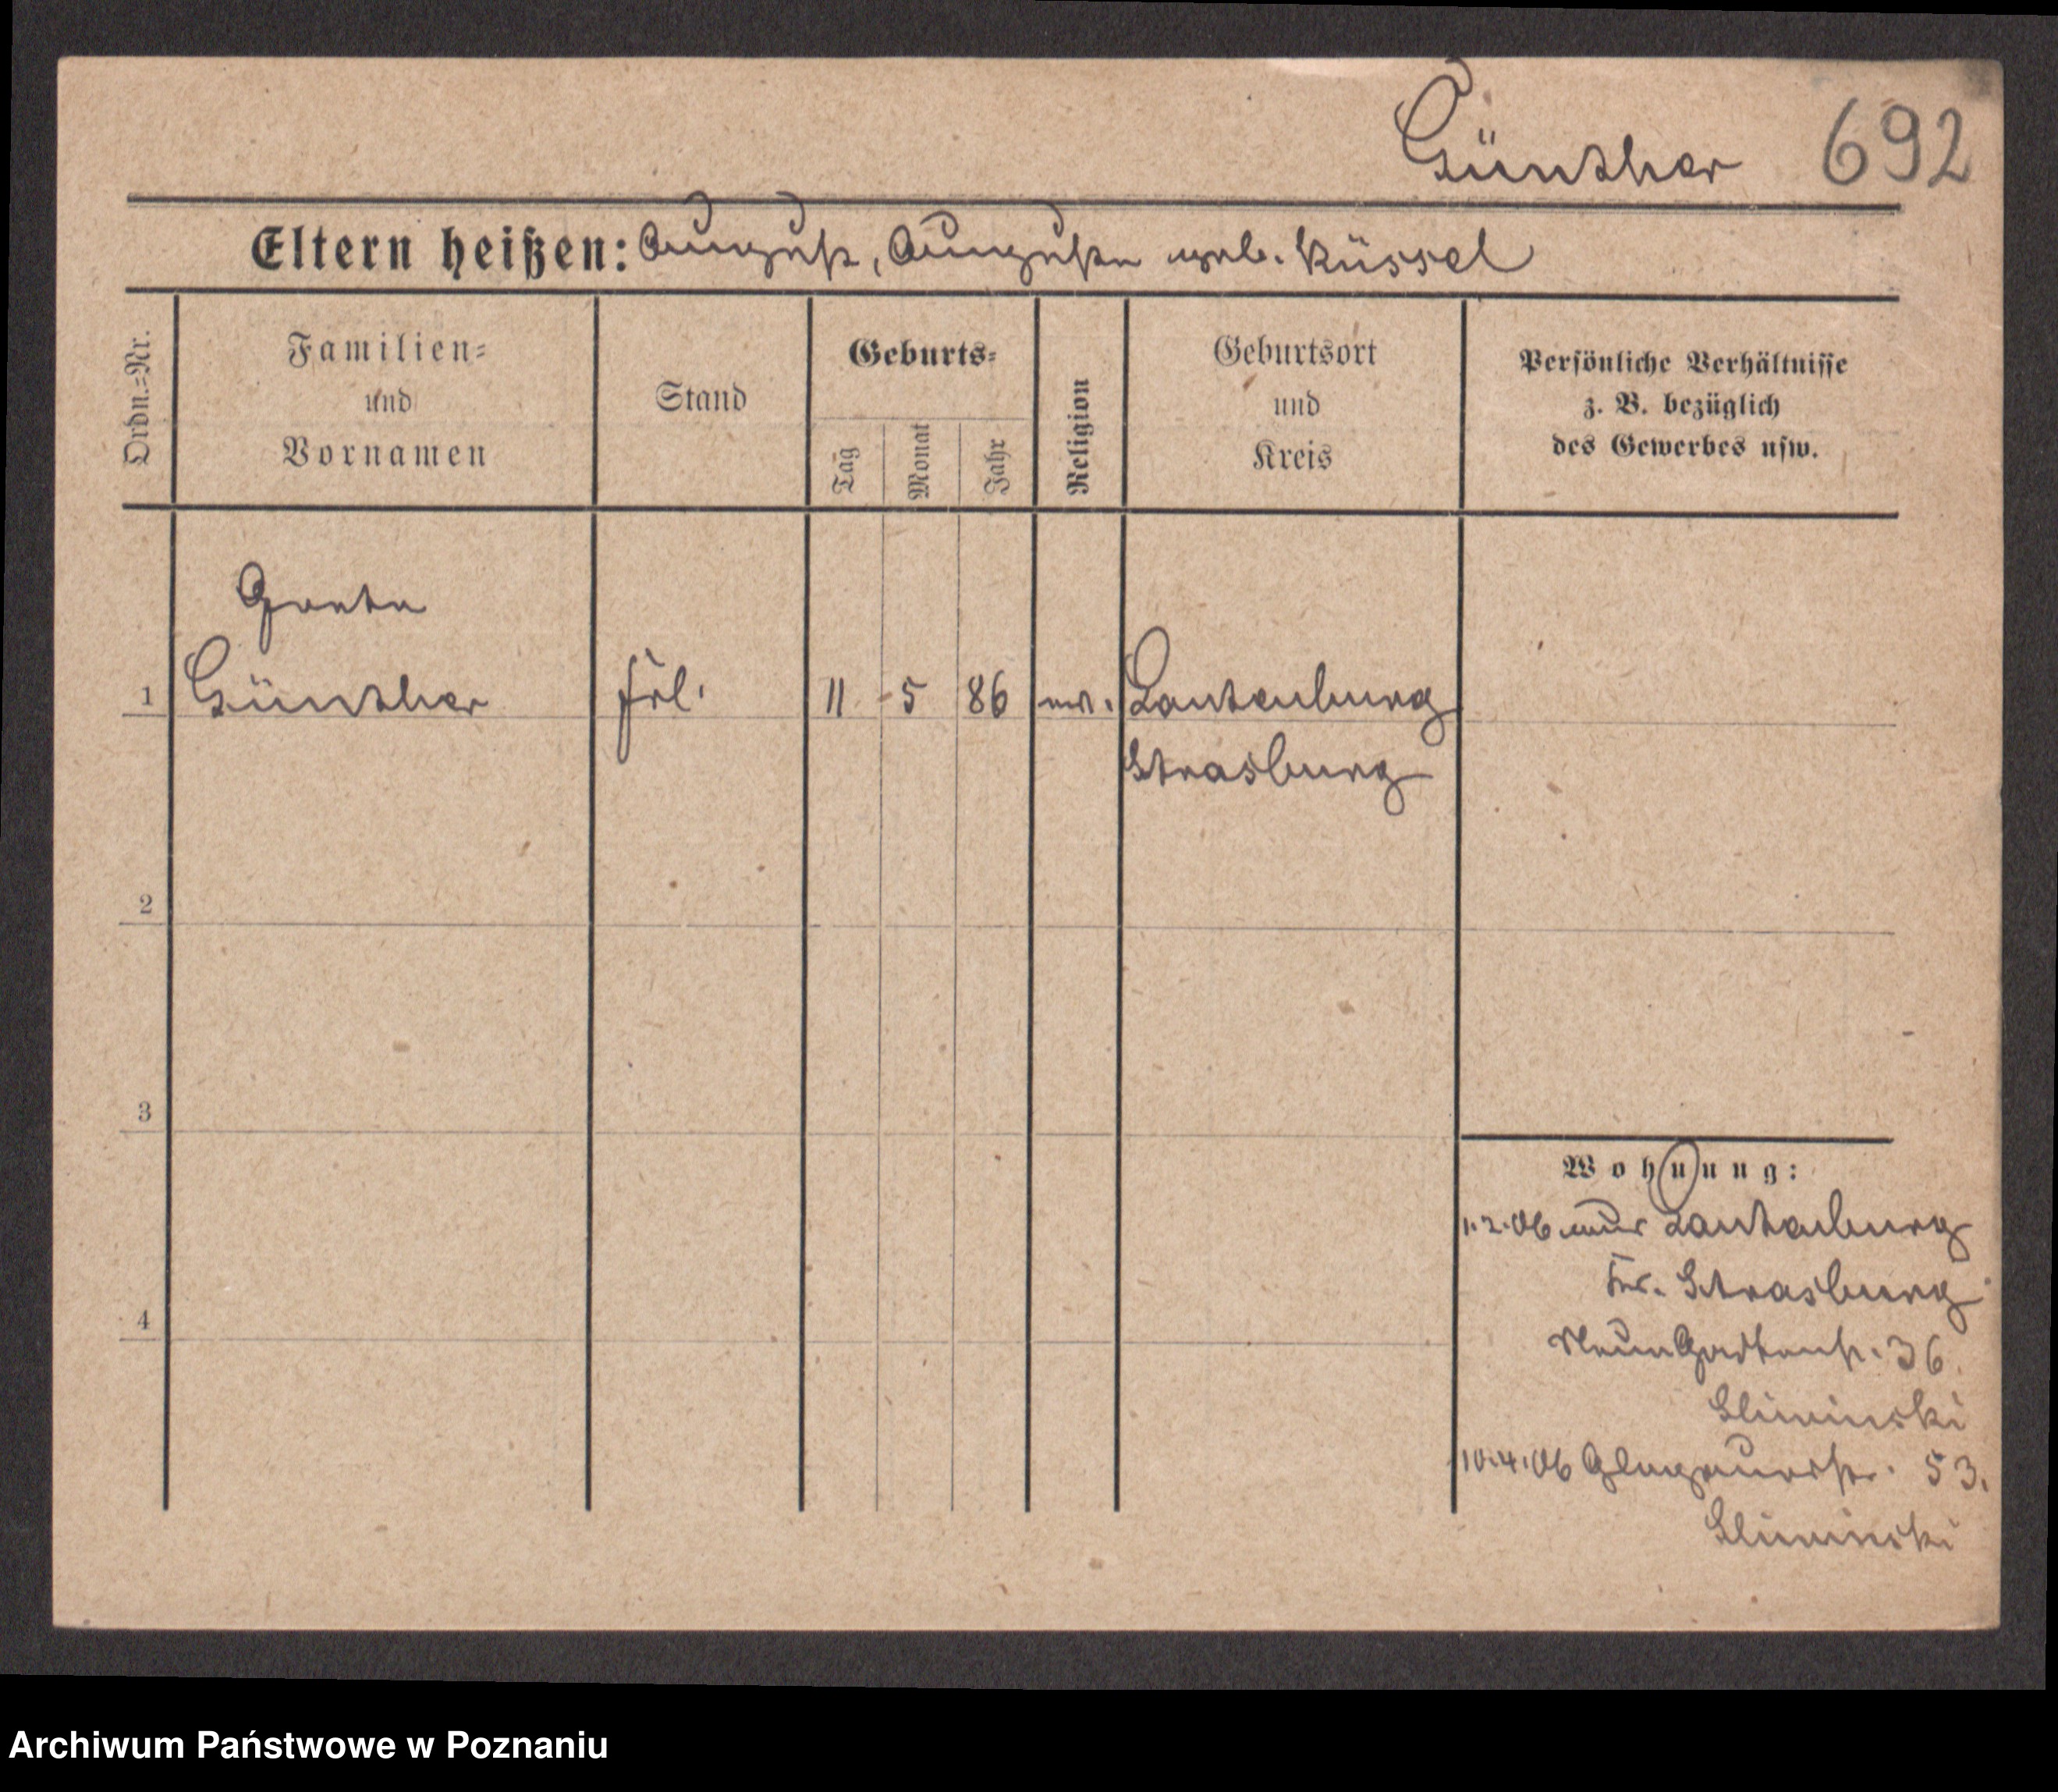 Günther 692
Eltern heißen: August, Auguste geb. Küssel
Ordn.=Nr.
Familien=
und
Vornamen
Stand
Geburts=
Tag
Monat
Jahr
Religion
Geburtsort
und
Kreis
Persönliche Verhältnisse
z. B. bezüglich
des Gewerbes usw.
Grete
1 Günther Frl. 11 5 86 ev. Lautenburg
Strasburg
2
3
4
Wohnung:
1.2.06 aus Lautenburg
Kr. Strasburg
Neue Gartenstr. 36
Sliwinski
10.4.06 Glogauerstr. 53.
Sliwinski
Archiwum Państwowe w Poznaniu